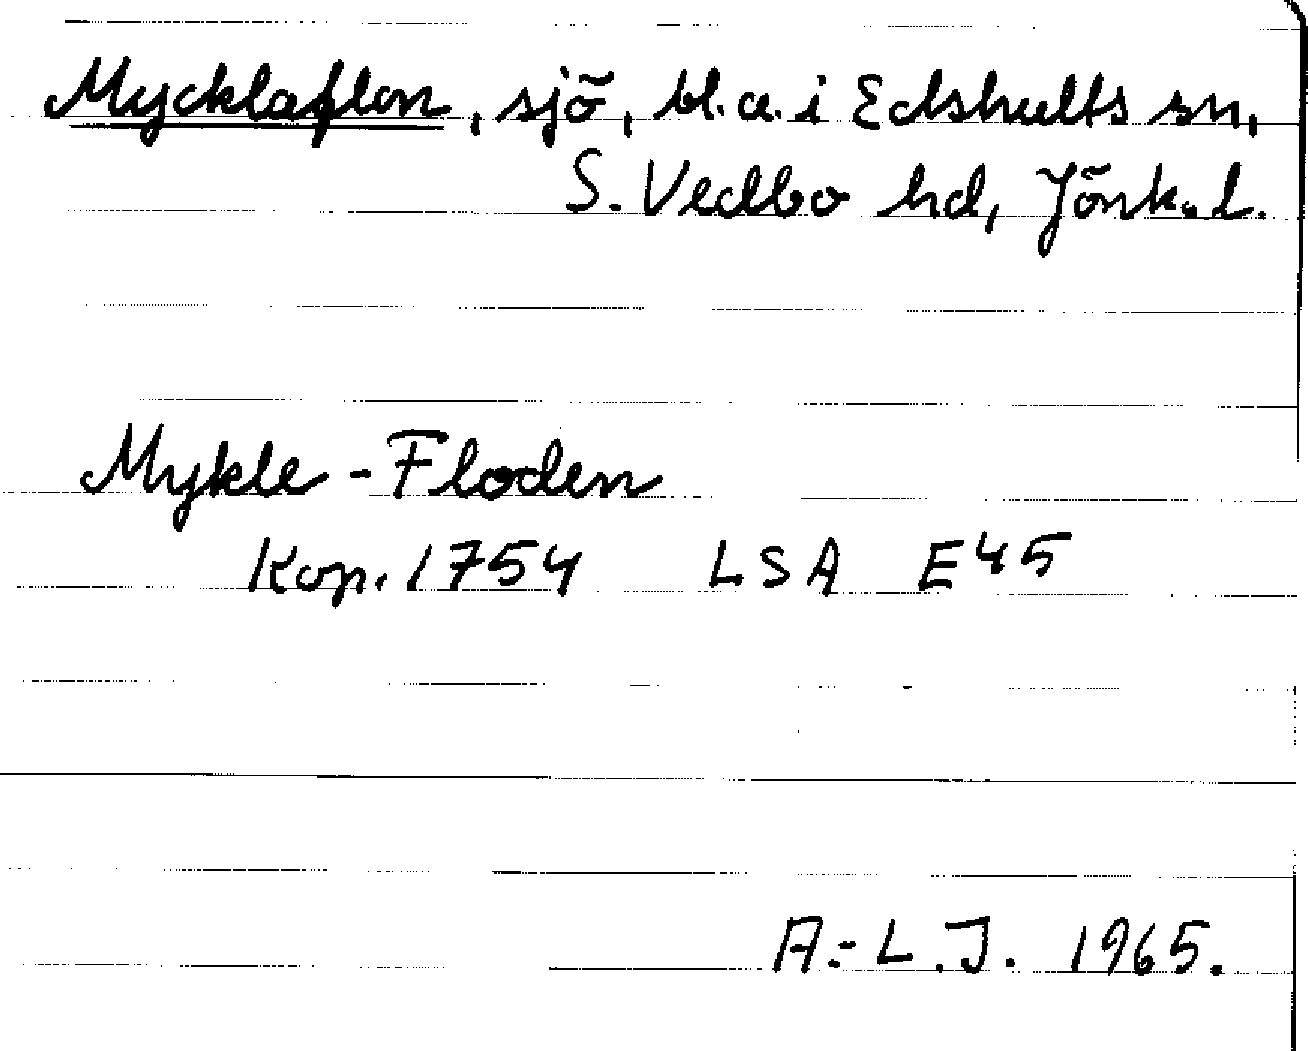 Mycklaflon, sjö, bl.a. i Edshults sn,
S. Vedbo hd, Jönk. l.
Mykle-Floden
Kop. 1754 LSA E45
A-L.J. 1965.